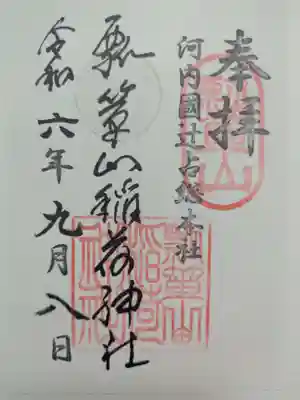 奉拝
河内國辻占総本社
瓢箪山稲荷神社
令和六年九月八日